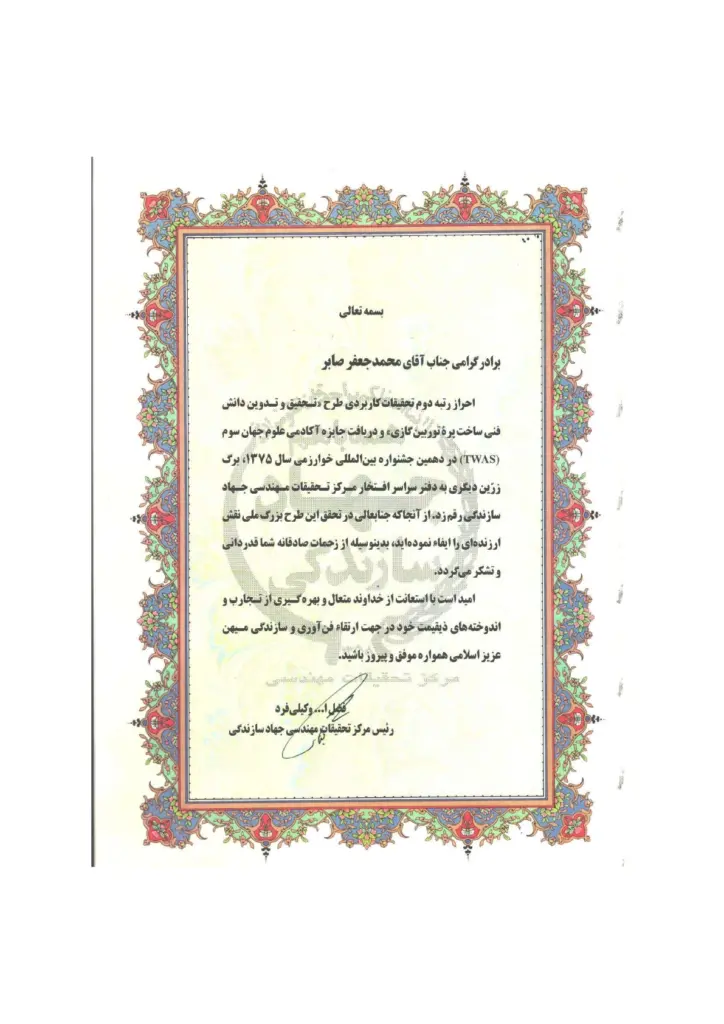 بسمه تعالی
برادر گرامی جناب آقای محمدجعفر صابر
احراز رتبه دوم تحقیقات کاربردی طرح «تحقیق و تدوین دانش
فنی ساخت پرهٔ توربین گازی» و دریافت جایزه آکادمی علوم جهان سوم
(TWAS) در دهمین جشنواره بین‌المللی خوارزمی سال ۱۳۷۵، برگ
زرّین دیگری به دفتر سراسر افتخار مرکز تحقیقات مهندسی جهاد
سازندگی رقم زد. از آنجا که جنابعالی در تحقق این طرح بزرگ ملی نقش
ارزنده‌ای را ایفاء نموده‌اید، بدینوسیله از زحمات صادقانه شما قدردانی
و تشکر می‌گردد.
امید است با استعانت از خداوند متعال و بهره‌گیری از تجارب و
اندوخته‌های ذیقیمت خود در جهت ارتقاء فن‌آوری و سازندگی میهن
عزیز اسلامی همواره موفق و پیروز باشید.
جهاد
سازندگی
مرکز تحقیقات مهندسی
فضل ا... وکیلی‌فرد
رئیس مرکز تحقیقات مهندسی جهاد سازندگی